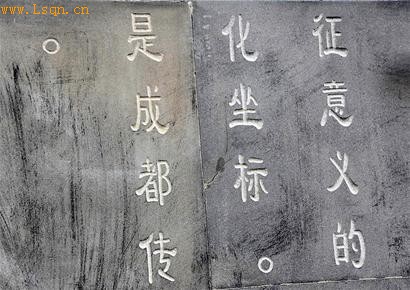 www.Lsqn.cn
征意义的
化坐标。
是成都传
。